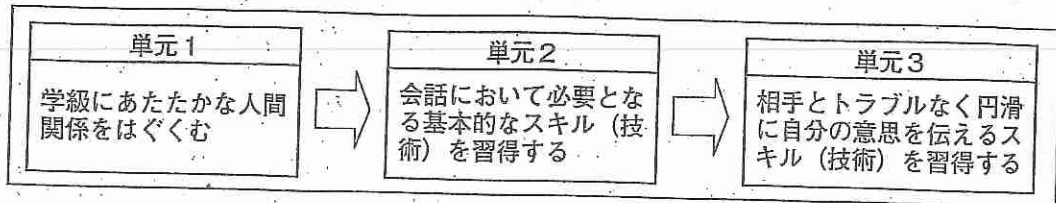 単元1
学級にあたたかな人間
関係をはぐくむ
単元2
会話において必要とな
る基本的なスキル（技
術）を習得する
単元3
相手とトラブルなく円滑
に自分の意思を伝えるス
キル（技術）を習得する